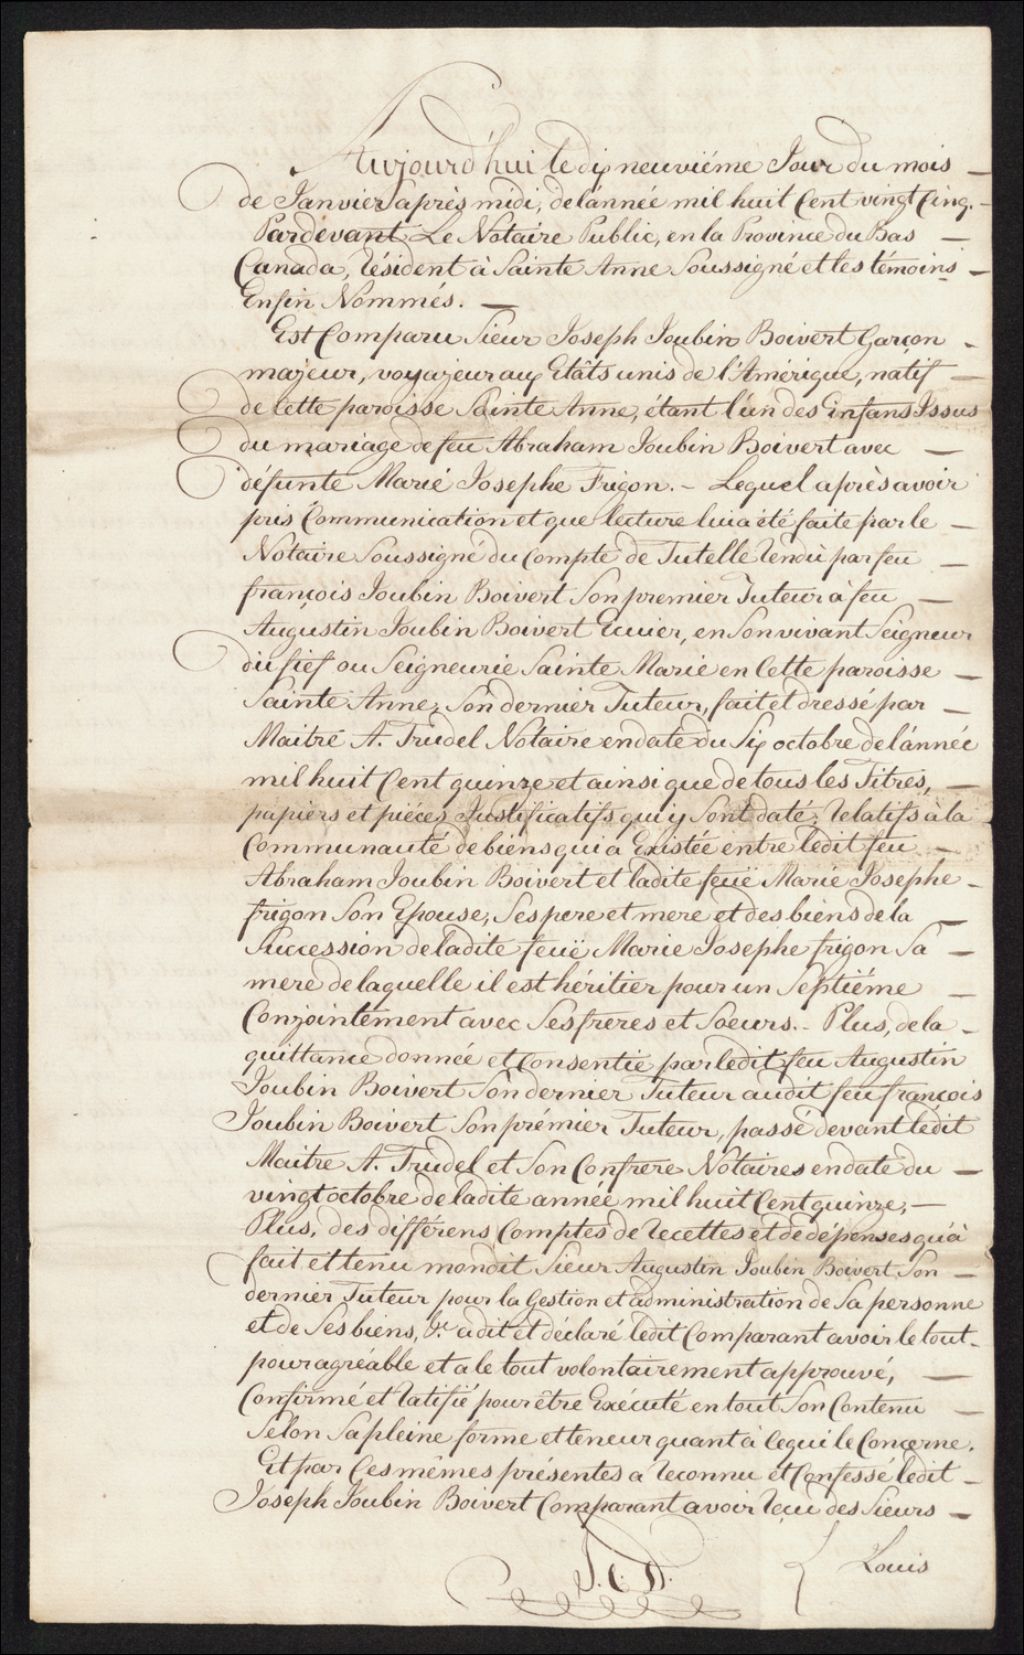 Aujourd'hui le dix neuviéme Jour du mois —
de Janvier après midi, de l'année mil huit Cent vingt Cinq. —
Pardevant Le Notaire Public, en la Province du Bas —
Canada, résident à Sainte Anne Soussigné et les témoins —
Enfin Nommés. —
Est Comparu Sieur Joseph Joubin Boivert Garçon -
majeur, voyajeur aux Etâts unis de l'Amérique, natif —
de Cette paroisse Sainte Anne, étant l'un des Enfans Issus
du mariage de feu Abraham Joubin Boivert avec —
défunte Marie Josephe Frigon. - Lequel après avoir
pris Communication et que lecture lui a été faite par le —
Notaire Soussigné du Compte de Tutelle rendu par feu —
françois Joubin Boivert Son premier Tuteur à feu —
Augustin Joubin Boivert Ecuier, en Son vivant Seigneur
du fief ou Seigneurie Sainte Marie en Cette paroisse —
Sainte Anne, Son dernier Tuteur, fait et dressé par —
Maitre A. Trudel Notaire en date du Six octobre de l'année
mil huit Cent quinze et ainsi que de tous les Titres, —
papiers et piéces Justificatifs qui y Sont daté, relatifs à la
Communauté de biens qui a Existée entre ledit feu —
Abraham Joubin Boivert et ladite feuë Marie Josephe -
frigon Son Epouse, Ses pere et mere et des biens de la —
Succession de ladite feuë Marie Josephe frigon Sa —
mere de laquelle il est héritier pour un Septiéme —
Conjointement avec Ses freres et Soeurs. - Plus, de la -
quittance donnée et Consentie par ledit feu Augustin
Joubin Boivert Son dernier Tuteur audit feu françois
Joubin Boivert Son prémier Tuteur, passé devant ledit
Maitre A. Trudel et Son Confrere Notaires en date du —
vingt octobre de ladite année mil huit Cent quinze, —
Plus, des différens Comptes de recettes et de dépenses qu'à
fait et tenu mondit Sieur Augustin Joubin Boivert, Son —
dernier Tuteur pour la Gestion et administration de Sa personne
et de Ses biens, &c. a dit et déclaré ledit Comparant avoir le tout -
pour agréable et a le tout volontairement approuvé, —
Confirmé et ratifié pour être Exécuté en tout Son Contenu —
Selon Sa pleine forme et teneur quant à Ce qui le Concerne.
Et par Ces mêmes présentes a reconnu et Confessé ledit —
Joseph Joubin Boivert Comparant avoir reçu des Sieurs —
Louis